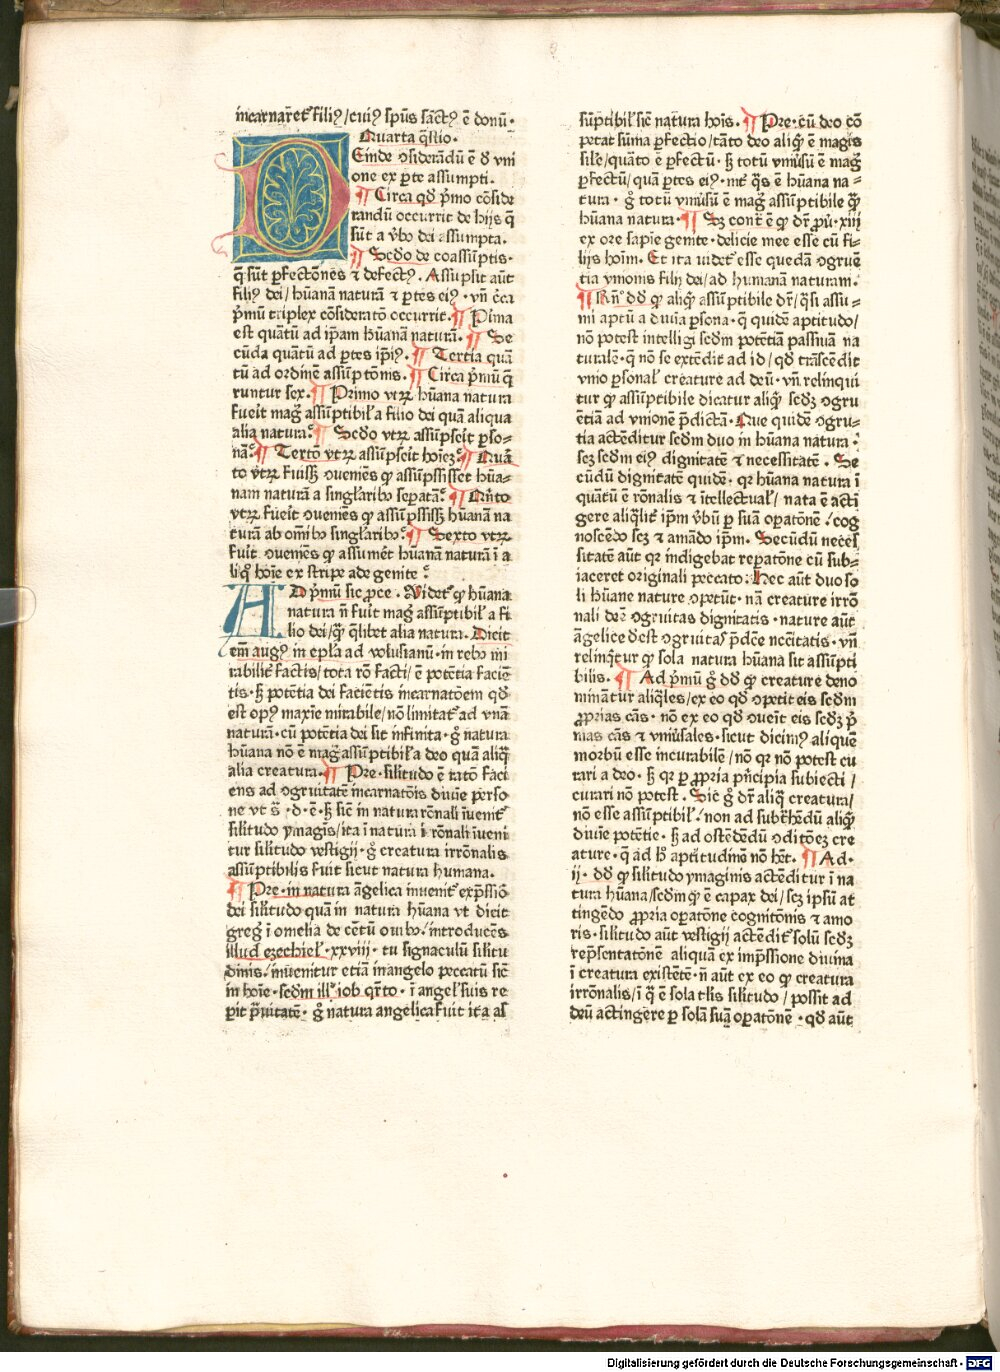 incarnaret᷒ filiꝰ/cuiꝰ spūs sāctꝰ ē donū.
Quarta q̄stio.
DEinde ꝯsiderādū ē ꝺ vni
one ex ꝑte assumpti.
¶ Circa qd̄ p̄mo cōside
randū occurrit de hijs q̄
sūt a v̄bo dei assumpta.
¶ Scdo de coassūptis.
q̄ sūt ꝑfectōnes ⁊ defectꝰ. Assūpsit aūt
filiꝰ dei/hūanā naturā ⁊ ꝑtes eiꝰ. vn̄ c̄ca
p̄mū triplex cōsideratō occurrit. ¶ Pima
est quātū ad ip̄am hūanā naturā. ¶ Se
cūda quātū ad ꝑtes ip̄iꝰ. ¶ Tertia quā
tū ad ordinē assūptōnis. ¶ Circa p̄mū q̄
runtur sex. ¶ Primo vtꝝ hūana natura
fue̅it mag̅ assūptibil̕ a filio dei quā aliqua
alia natura. ¶ Scdo vtꝝ assūpseit ꝑso-
nā. ¶ Tertō vtꝝ assūpseit hoīez. ¶ Quā
to vtꝝ fuisſ ꝯueniēs ꝙ assūpsisset hūa-
nam naturā a singlaribꝰ sepatā. ¶ Qn̄to
vtꝝ fueit ꝯueniēs ꝙ assūpsissꝫ hūanā na
turā ab omībꝰ singlaribꝰ. ¶ Sexto vtꝝ
fuit ꝯueniēs ꝙ assumēt hūanā naturā ī a
liq̊ hoīe ex stripe ade genite.
AD p̄mū sic ꝓce. Videt᷒ ꝙ hūana
natura n̄ fuit mag̅ assūptibil̕ a fi
lio dei/q̄ꝫ qᷓlibet alia natura. Dicit
em̄ augꝰ in epl̄a ad volusianū. in rebꝰ mi
rabilit᷒ factis/tota rō facti/ē potētia faciē
tis. sꝫ potētia dei faciētis incarnatōem qd̄
est opꝰ maxīe mirabile/nō limitat᷒ ad vnā
naturā. cū potētia dei sit infinita. g̊ natura
hūana nō ē mag̅ assūptibil̕ a deo quā aliq̄
alia creatura. ¶ Pre. silitudo ē ratō faci
ens ad ꝯgruitatē incarnatōis diuīe perso
ne vt s̄ .d.ē. sꝫ sic̄ in natura rōnali īuenit᷒
silitudo ymagīs/ita ī natura irrōnali īueni
tur silitudo vestigij. g̊ creatura irrōnalis
assūptibilis fuit sicut natura humana.
¶ Pre. in natura āgelica īnuenit᷒ exp̄ssiō
dei sil̄itudo quā in natura hūana vt dicit
greg̅ ī omelia de cētū ouibꝰ/introducēs
illud ezechiel̕. xxviij. tu signaculū silitu
dinis. inuenitur etiā in angelo peccatū sic̄
in hoīe. scdm ill̕ iob qr̄to. ī angel̕ suis re
pit p̄uitatē. g̊ natura angelica fuit ita as
sūptibil̕ sic̄ natura hoīs. ¶ Pre. cū deo cō
petat sūma ꝑfectio/tāto deo aliqͥd ē magis
sile/quāto ē ꝑfectū. sꝫ totū vniūsū ē mag̅
ꝑfectū/quā ꝑtes eiꝰ. int᷒ qᷓs ē hūana na=
tura. g̊ totū vniūsū ē mag̅ assūptibile qᷓꝫ
hūana natura. ¶ Sꝫ cont̄ ē ꝙ dr̄ ꝓū. xiij
ex ore sapīe genite. delicie mee esse cū fi-
lijs hoīm. Et ita uidet᷒ esse quedā ꝯgruē
tia vnionis filij dei/ad humanā naturam.
¶ Rn̄. dd̄ ꝙ aliqͥd assūptibile dr̄/qͣsi assu=
mi aptū a diuīa ꝑsona. q̄ quidē aptitudo/
nō potest intelligi scdm potētiā passiuā na
turalē. q̄ nō se extēdit ad id/qd̄ trāscēdit
vnio ꝑsonal̕ creature ad deū. vn̄ relinqui
tur ꝙ assūptibile dicatur aliqͥd scdꝫ ꝯgru
ētiā ad vnionē p̄dictā. Que quidē ꝯgru-
tia actēditur scdm duo in hūana natura.
scꝫ scdm eiꝰ dignitatē ⁊ necessitatē. Se
cūdū dignitatē quidē. qꝛ hūana natura ī
quātū ē rōnalis ⁊ ītellectual̕/nata ē acti
gere aliqᷓlit᷒ ip̄m v̄bū ꝑ suā oꝑatōnē/cog
noscēdo scꝫ ⁊ amādo ip̄m. Secūdū neces
sitatē aūt qꝛ indigebat reparatōne cū sub-
iaceret originali peccato. Hec aūt duo so
li hūane nature ꝯpetūt. nā creature irrō
nali deē ꝯgruitas dignitatis. nature aūt
āgelice dest ꝯgruitas p̄dc̄e nec̄itatis. vn̄
relinq̄tur ꝙ sola natura hūana sit assūpti
bilis. ¶ Ad p̄mū g̊ dd̄ ꝙ creature deno
minātur aliqᷓles/ex eo qd̄ ꝯpetit eis scdm
ꝓprias cās. nō ex eo qd̄ ꝯueīt eis scdꝫ p̄
mas cās ⁊ vniūsales. sicut dicimꝰ aliquē
morbū esse incurabilē/nō qꝛ nō potest cu
rari a deo. sꝫ qꝛ ꝑ ꝓpria pn̄cipia subiecti/
curari nō potest. Sic̄ g̊ dr̄ aliqᷓ creatura/
nō esse assūptibil̕/non ad subt̄hēdū aliqͥd
diuīe potētie. sꝫ ad ostēdēdū ꝯditōeꝫ cre
ature. q̄ ad hͦ aptitudinē nō hēt. ¶ Ad.
ij. dd̄ ꝙ silitudo ymaginis actēditur ī na
tura hūana/scdm ꝙ ē capax dei/scꝫ ipsū at
tingēdo ꝓpria oꝑatōne cognitōnis ⁊ amo
ris. silitudo aūt vestigij actēdit᷒ solū scdꝫ
rep̄sentatōnē aliquā ex imp̄ssione diuina
ī creatura existētē. n̄ aūt ex eo ꝙ creatura
irrōnalis/ī qᷓ ē sola tl̄is silitudo/possit ad
deū actingere ꝑ solā suā oꝑatōnē. qd̄ aūt
Digitalisierung gefördert durch die Deutsche Forschungsgemeinschaft - DFG